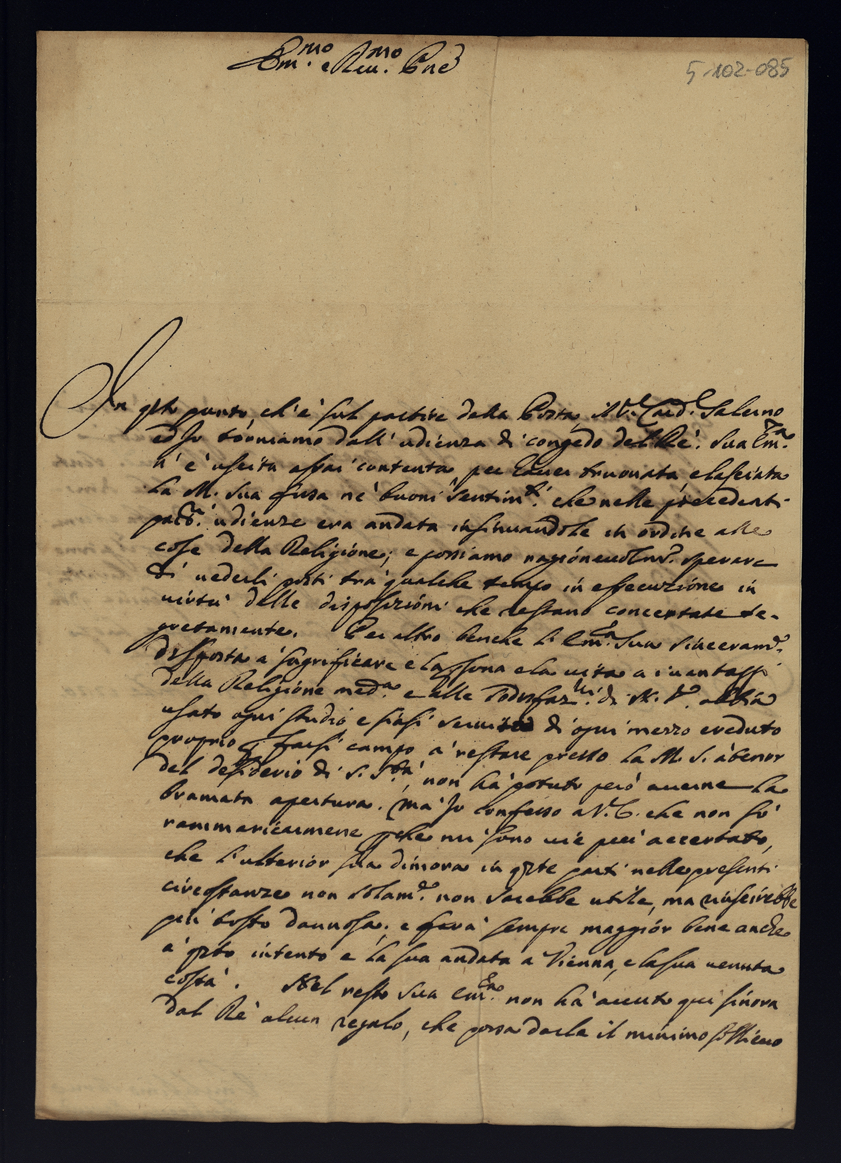 Em.mo e Reu.mo P.ne
5-102-085
In q.to punto ch'è sul partire della Posta il S.r Card.l Salerno
ed Io torniamo dall'udienza di congedo del Rè. Sua Em.za
n'è uscita assai contenta per hauer trouata e lasciata
la M. Sua fissa ne' buoni sentim.ti che nelle precedenti
udienze era andata insinuandole in ordine alle
cose della Religione; e possiamo ragioneuolm.te sperare
di uederli posti trà qualche tempo in essecuzione in
uirtù delle disposizioni che restano concertate se-
gretamente. Per altro benche l'Em.za Sua sinceram.te
disposta a sagrificare e la persona e la uita a i uantaggi
della Religione med.a e alle sodisfaz.ni di N. S.re abbia
usato ogni studio e siasi seruito di ogni mezzo creduto
proprio p farsi campo à restare presso la M. S. à tenor
del desiderio di S. S.tà, non hà potuto però auerne la
bramata apertura. Ma Io confesso a V. E. che non sò
rammaricarmene p che mi sono uie più accertato,
che l'ulterior sua dimora in q.te parti nelle presenti
circostanze non solam.te non sarebbe utile, ma riuscirebbe
più tosto dannosa; e farà sempre maggior bene anche
à q.to intento e la sua andata a Vienna, e la sua uenuta
costà. Nel resto Sua Em.za non hà auuto qui sinora
dal Rè alcun regalo, che possa darla il minimo sollieuo